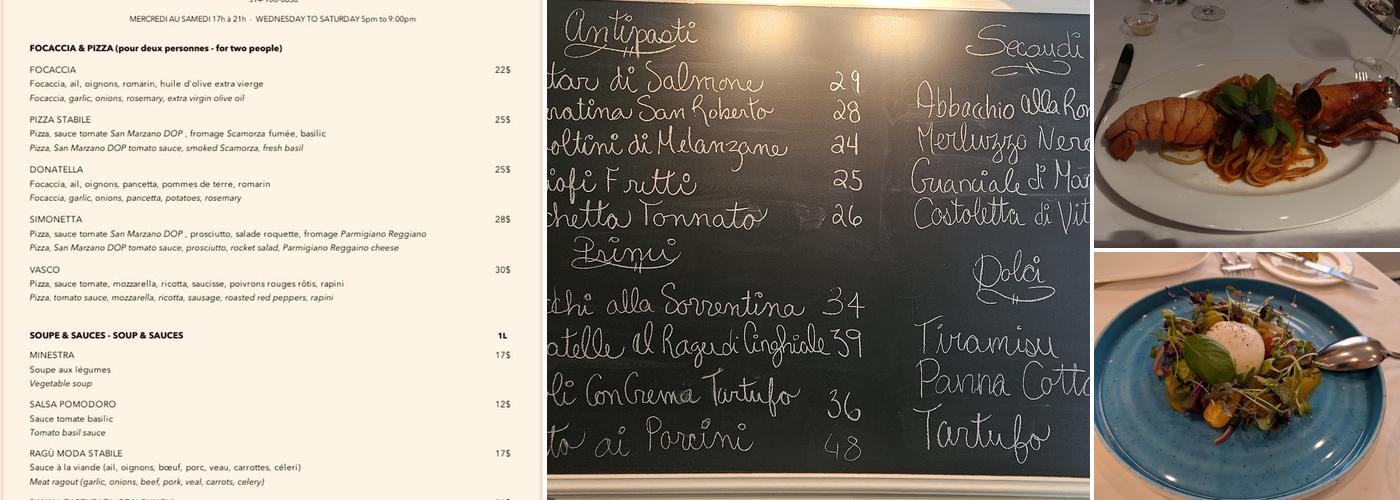 MERCREDI AU SAMEDI 17h à 21h - WEDNESDAY TO SATURDAY 5pm to 9:00pm
FOCACCIA & PIZZA (pour deux personnes - for two people)
FOCACCIA 22$
Focaccia, ail, oignons, romarin, huile d'olive extra vierge
Focaccia, garlic, onions, rosemary, extra virgin olive oil
PIZZA STABILE 25$
Pizza, sauce tomate San Marzano DOP , fromage Scamorza fumée, basilic
Pizza, San Marzano DOP tomato sauce, smoked Scamorza, fresh basil
DONATELLA 25$
Focaccia, ail, oignons, pancetta, pommes de terre, romarin
Focaccia, garlic, onions, pancetta, potatoes, rosemary
SIMONETTA 28$
Pizza, sauce tomate San Marzano DOP , prosciutto, salade roquette, fromage Parmigiano Reggiano
Pizza, San Marzano DOP tomato sauce, prosciutto, rocket salad, Parmigiano Reggaino cheese
VASCO 30$
Pizza, sauce tomate, mozzarella, ricotta, saucisse, poivrons rouges rôtis, rapini
Pizza, tomato sauce, mozzarella, ricotta, sausage, roasted red peppers, rapini
SOUPE & SAUCES - SOUP & SAUCES 1L
MINESTRA 17$
Soupe aux légumes
Vegetable soup
SALSA POMODORO 12$
Sauce tomate basilic
Tomato basil sauce
RAGÙ MODA STABILE 17$
Sauce à la viande (ail, oignons, bœuf, porc, veau, carrottes, céleri)
Meat ragout (garlic, onions, beef, pork, veal, carrots, celery)
Antipasti
tar di Salmone 29
natina San Roberto 28
oltini di Melanzane 24
Fritti 25
chetta Tonnato 26
Primi
cchi alla Sorrentina 34
atelle al Ragu di Cinghiale 39
li Con Crema Tartufo 36
to ai Porcini 48
Secondi
Abbacchio alla Rom
Merluzzo Nero
Guanciale di Man
Costoletta di Vit
Dolci
Tiramisu
Panna Cotta
Tartufo